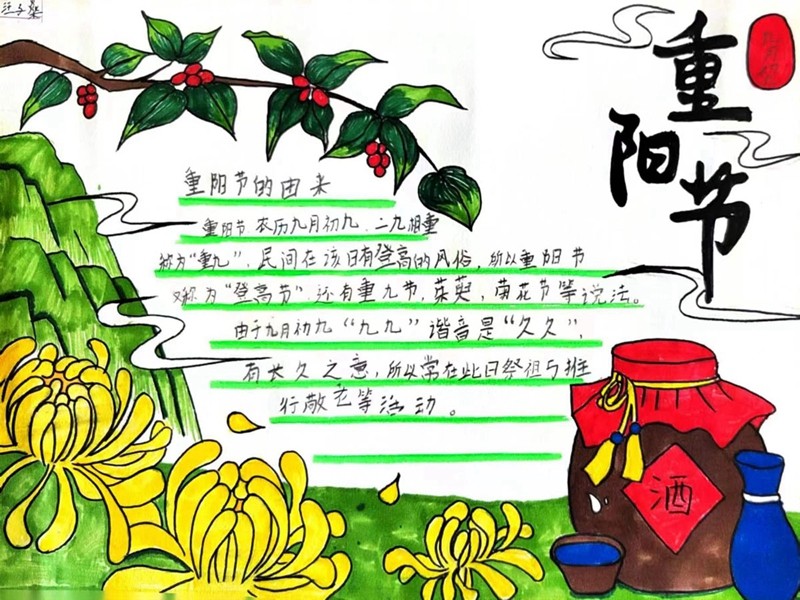 重阳节
重阳节的由来
重阳节,农历九月初九,二九相重
称为“重九”,民间在该日有登高的风俗,所以重阳节
又称为“登高节”.还有重九节,茱萸,菊花节等说法。
由于九月初九“九九”谐音是“久久”,
有长久之意,所以常在此日祭祖与推
行敬老等活动。
酒